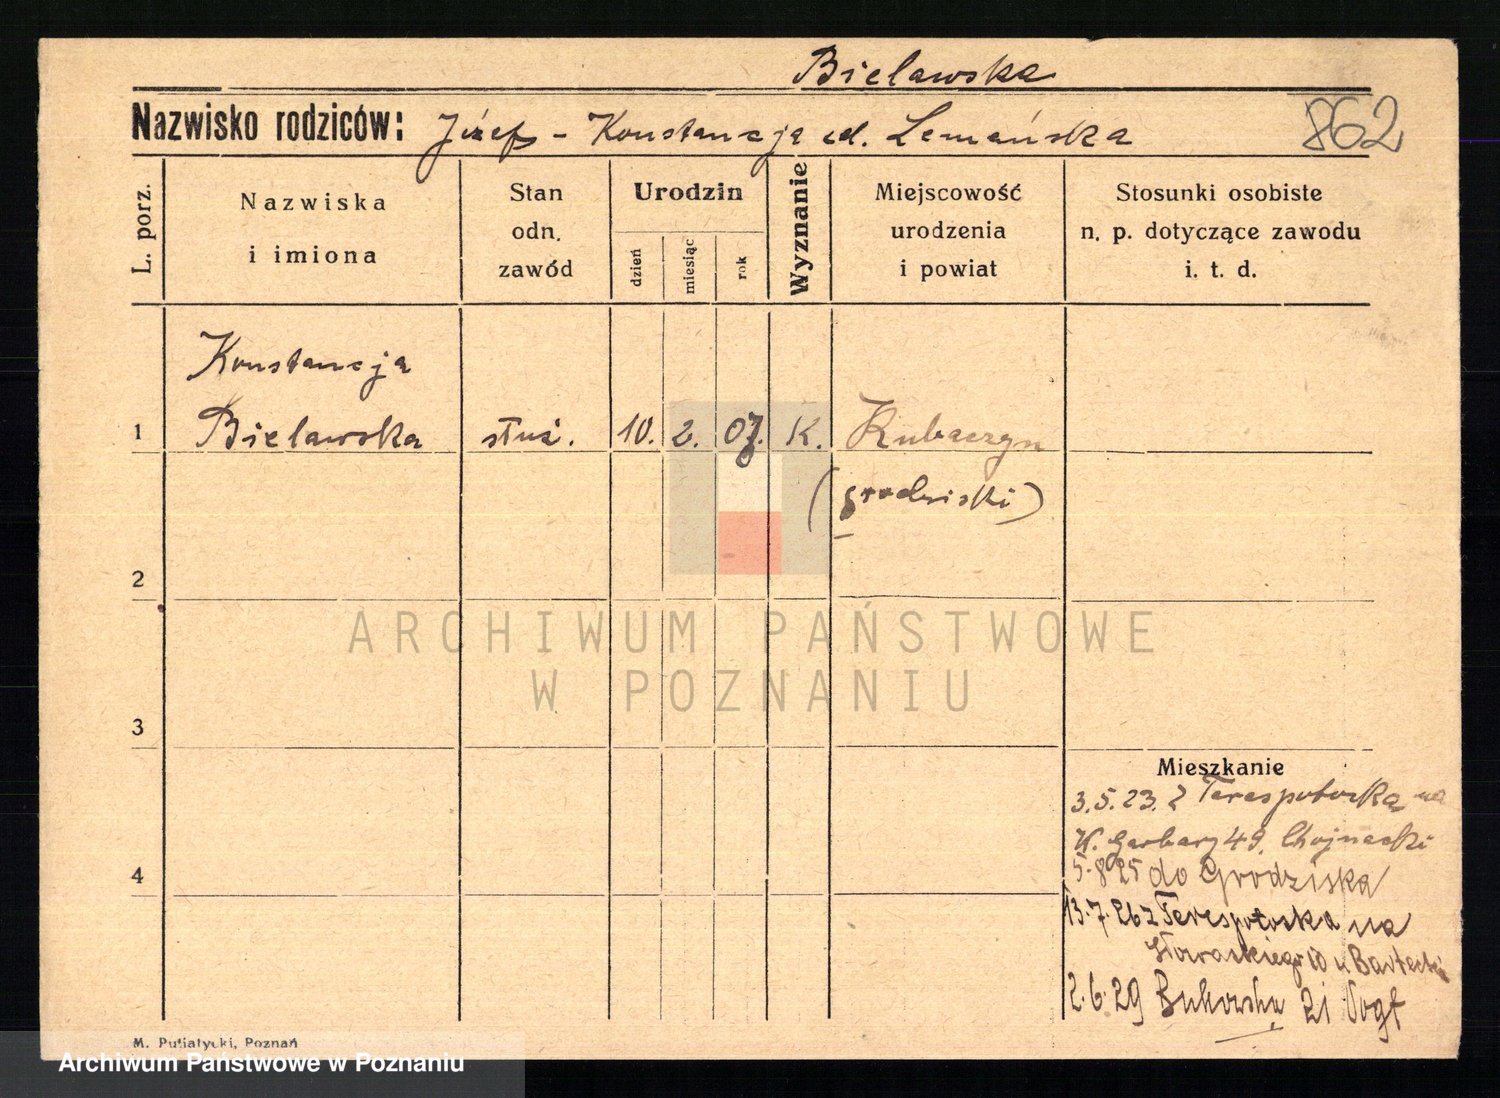 Bielawska
Nazwisko rodziców: Józef - Konstancja ed. Lemańska
862
L. porz.
Nazwiska
i imiona
Stan
odn.
zawód
Urodzin
dzień
miesiąc
rok
Wyznanie
Miejscowość
urodzenia
i powiat
Stosunki osobiste
n. p. dotyczące zawodu
i. t. d.
Konstancja
1 Bielawska służ. 10. 2. 07. K. Kubaczyn
(grodziski)
2
ARCHIWUM PAŃSTWOWE
W POZNANIU
3
Mieszkanie
3.5.23. z Terespotocka na
W. Garbary 49. Chojnacki
4
5.8 25 do Grodziska
13.7.26 z Terespotocka na
Słowackiego 10 u
2.6.29 Bukowska 21 Vogt
M. Putiatycki, Poznań
Archiwum Państwowe w Poznaniu